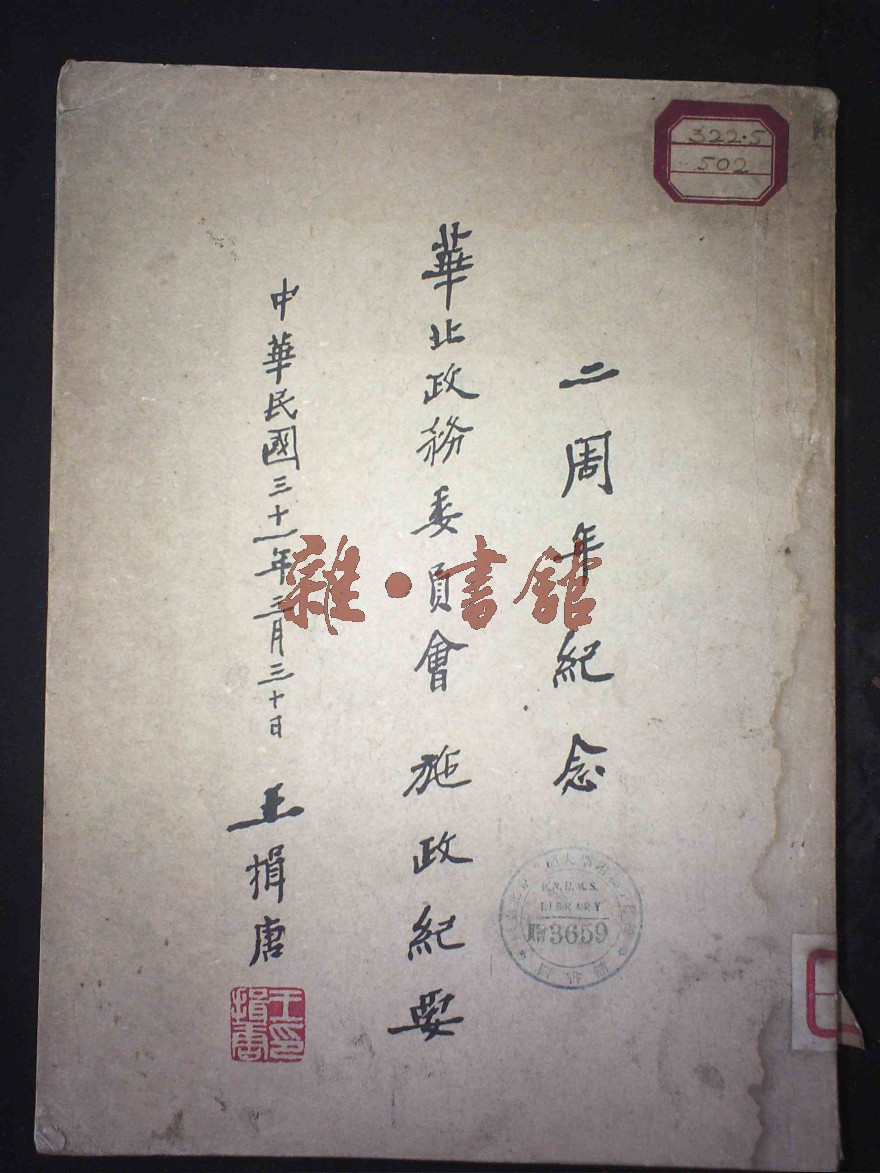 322.5
502
二周年紀念
華北政務委員會 施政紀要
中華民國三十一年三月三十日 王揖唐
王印
揖唐
雜·書館
LIBRARY
3659